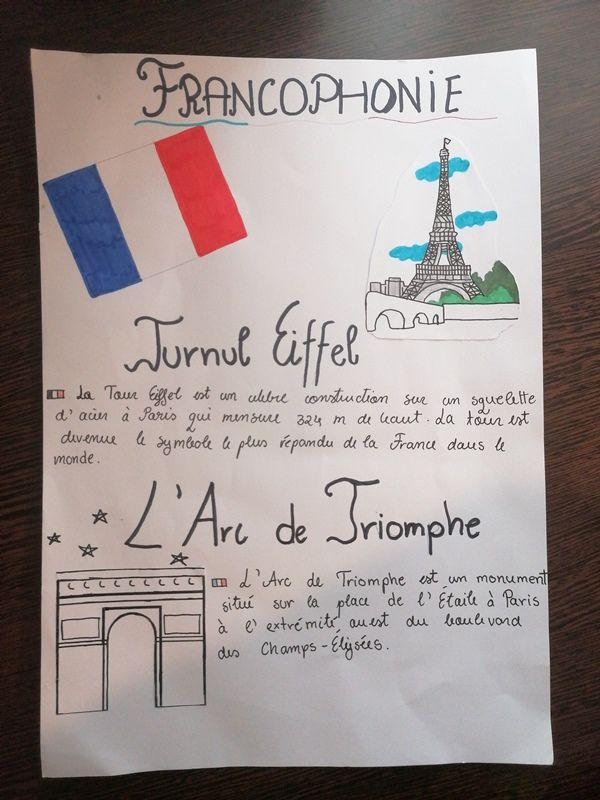 FRANCOPHONIE
Turnul Eiffel
La Tour Eiffel est un celebre construction sur un squelette
d'acier à Paris qui mensure 324 m de haut. La tour est
devenue le symbole le plus répandu de la France dans le
monde.
L'Arc de Triomphe
L'Arc de Triomphe est un monument
situé sur la place de l'Étaile à Paris
à l'extrémité ouest du boulevard
des Champs-Elysées.